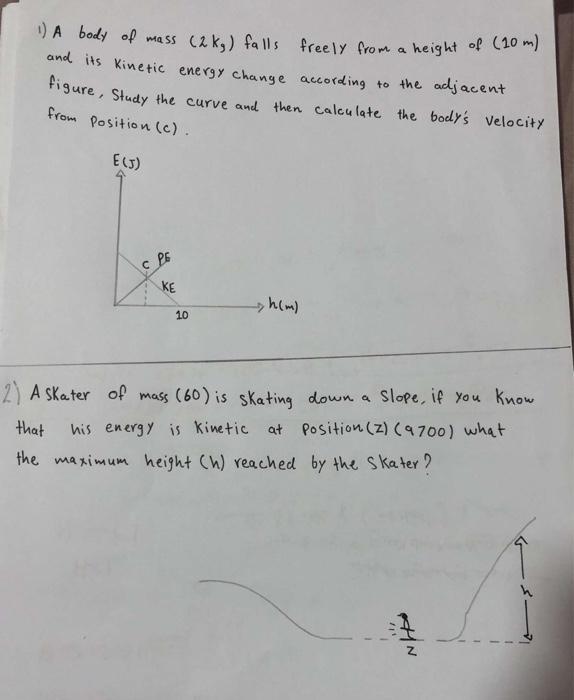 1) A body of mass (2 kg) falls freely from a height of (10 m)
and its Kinetic energy change according to the adjacent
figure, Study the curve and then calculate the body's velocity
from position (c).
E(J)
C PE
KE
10
h(m)
2) A skater of mass (60) is skating down a slope, if you know
that his energy is kinetic at position (z) (9700) what
the maximum height (h) reached by the skater?
h
z